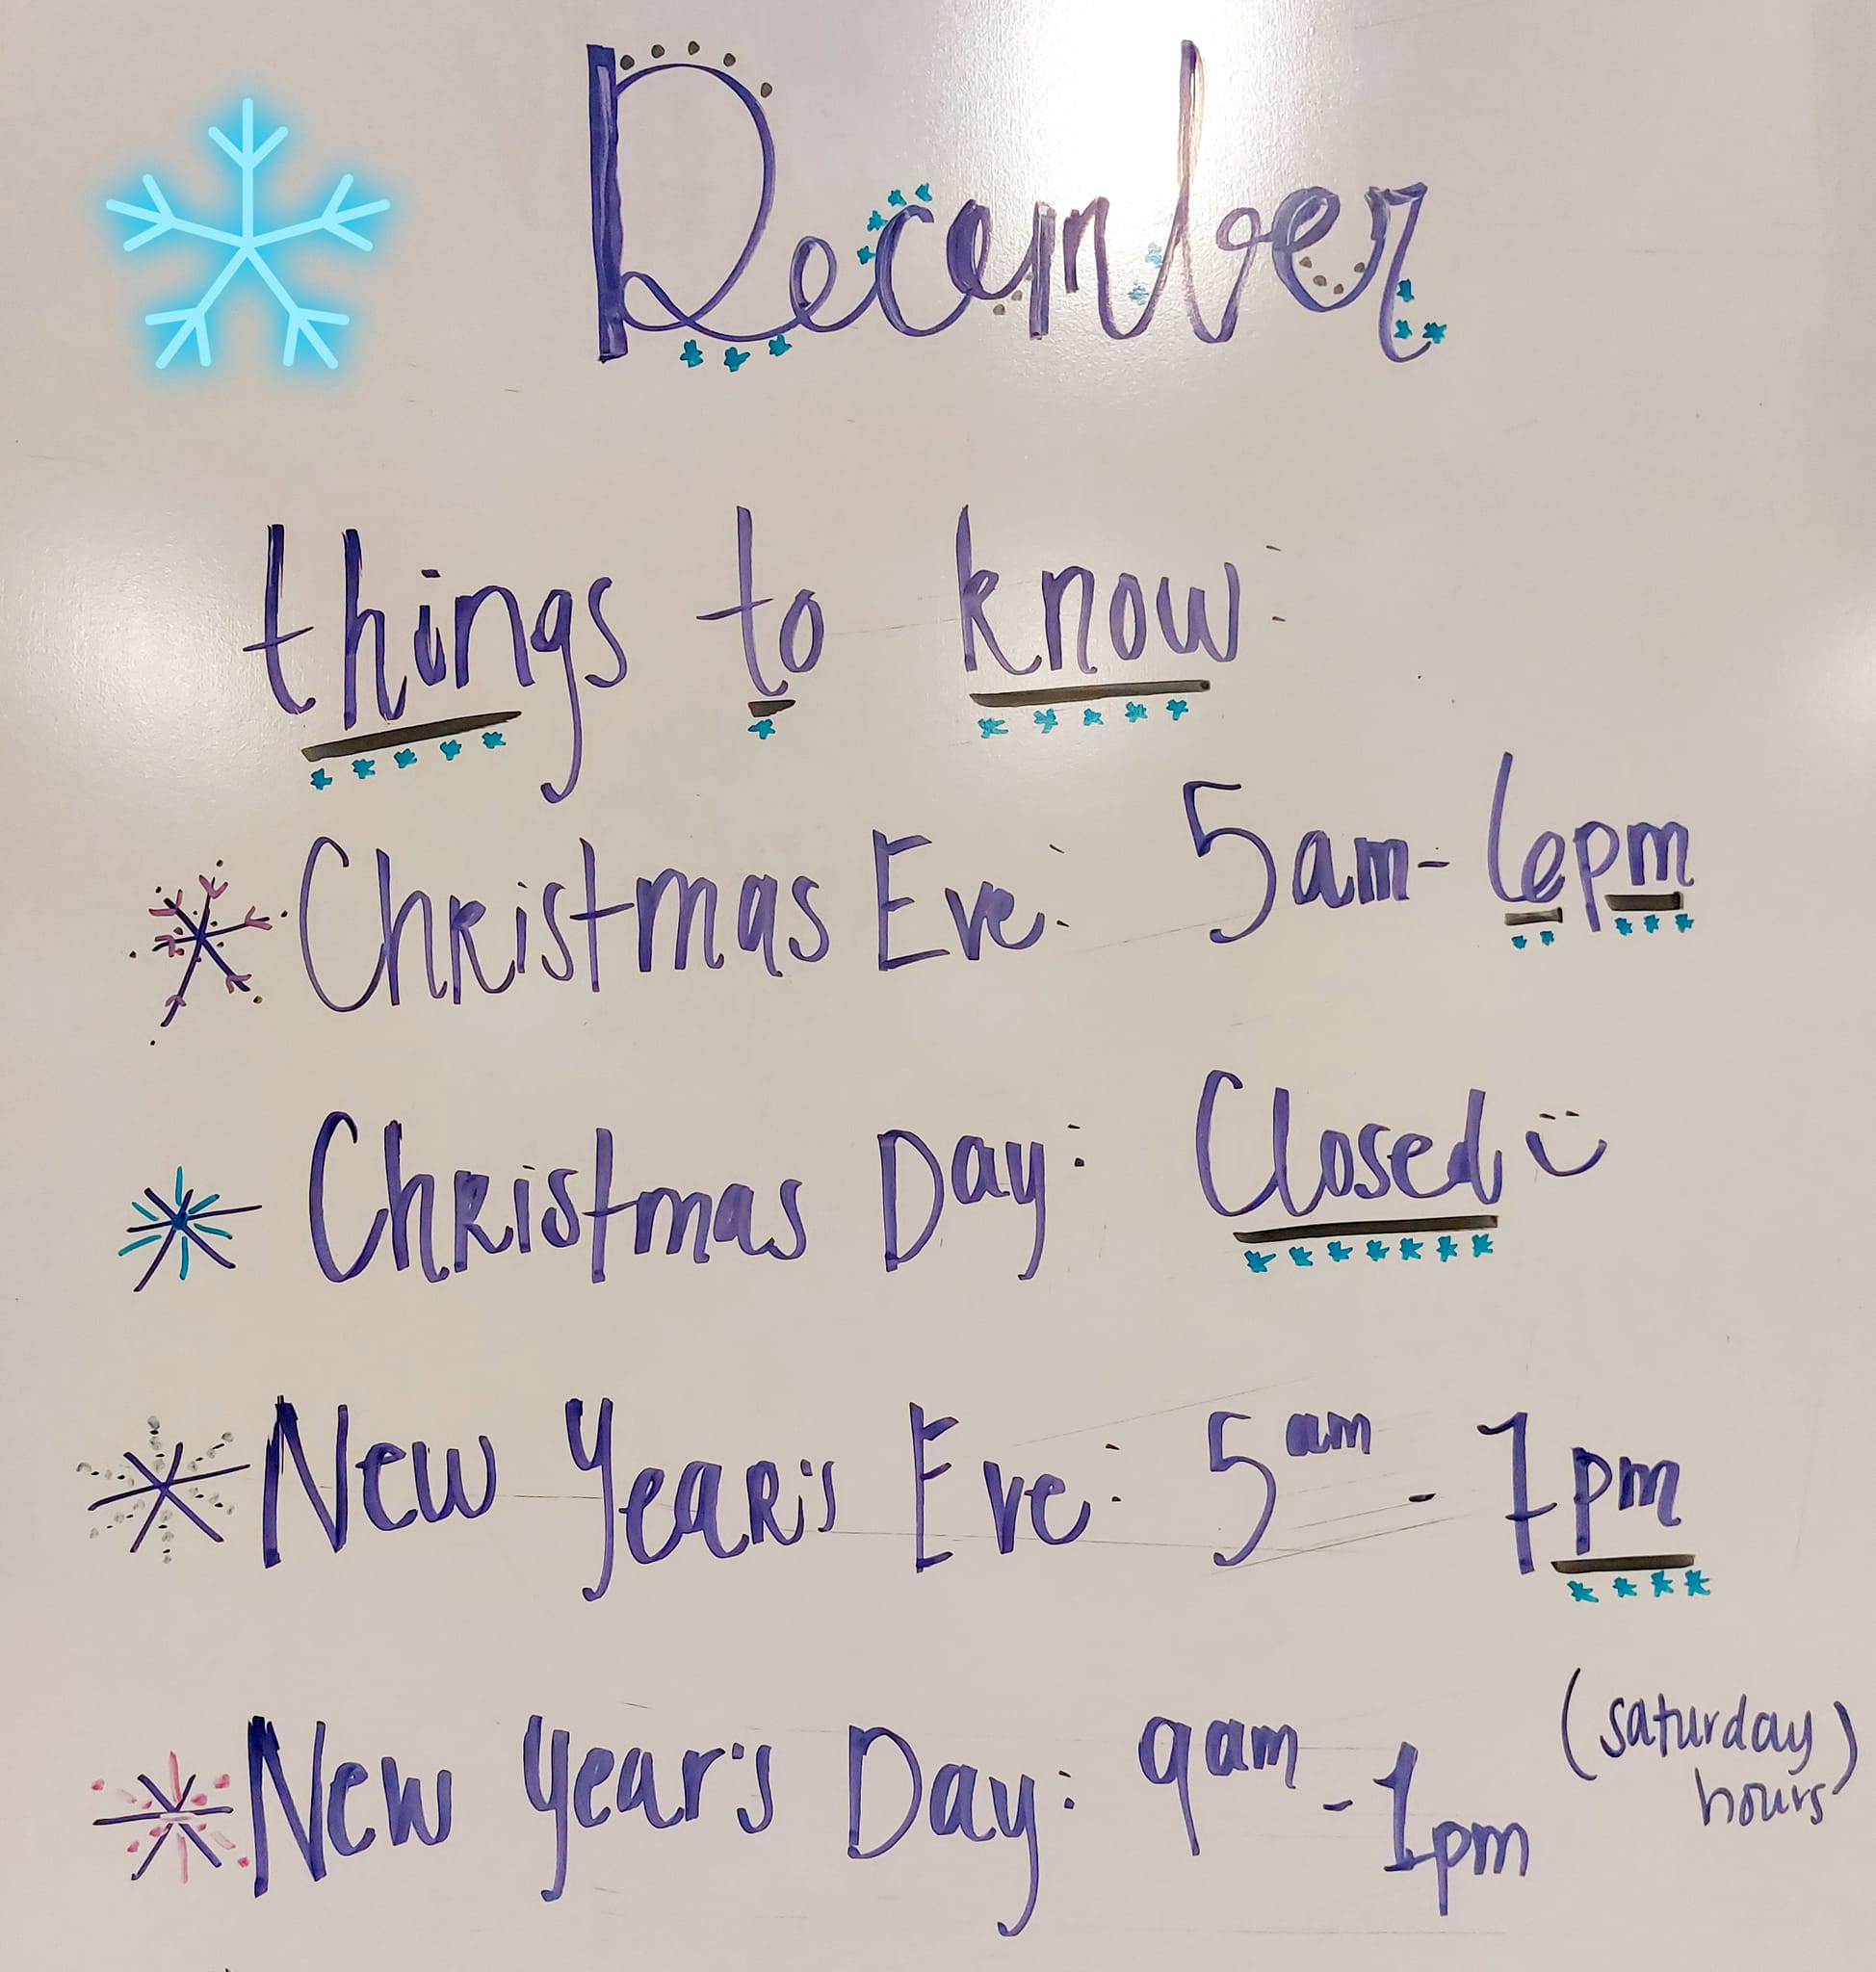 December
things to know:
Christmas Eve: 5am - 6pm
Christmas Day: Closed :)
New Year's Eve: 5am - 7pm
New Year's Day: 9am - 1pm (saturday
hours)